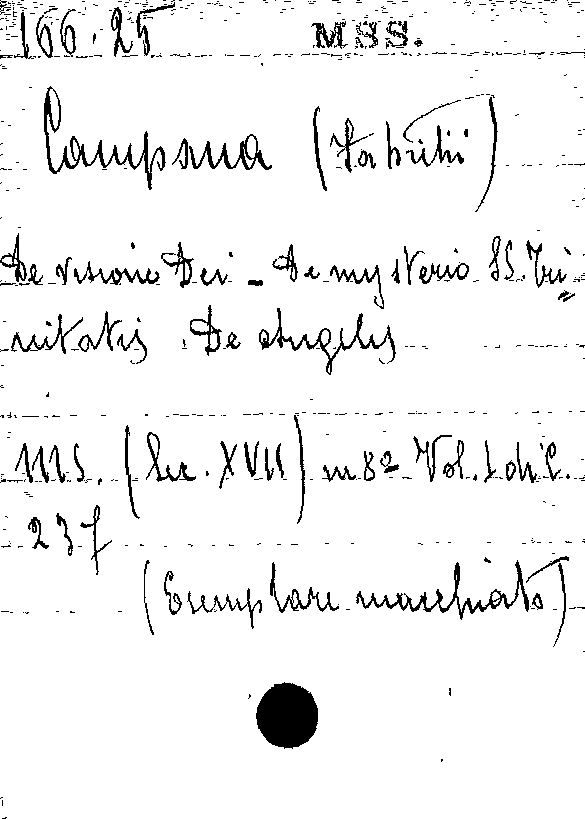 166.25 MSS.
Campana (Fabritii)
De visione Dei - De mysterio SS. Tri=
nitatis. De Angelis
ms. (Sec. XVII) in 8º Vol. 1 di C.
237
(Esemplare macchiato)